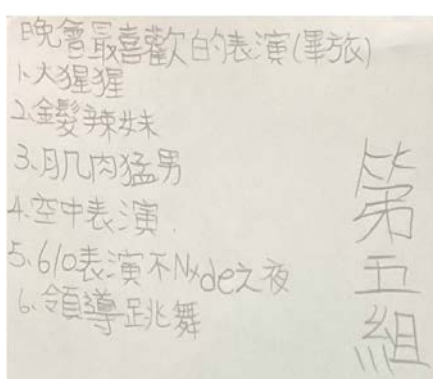 晚會最喜歡的表演(畢旅)
1.大猩猩
2.金髮辣妹
3.肌肉猛男
4.空中表演.
5.610表演不Nxde之夜
6.領導跳舞
第五組